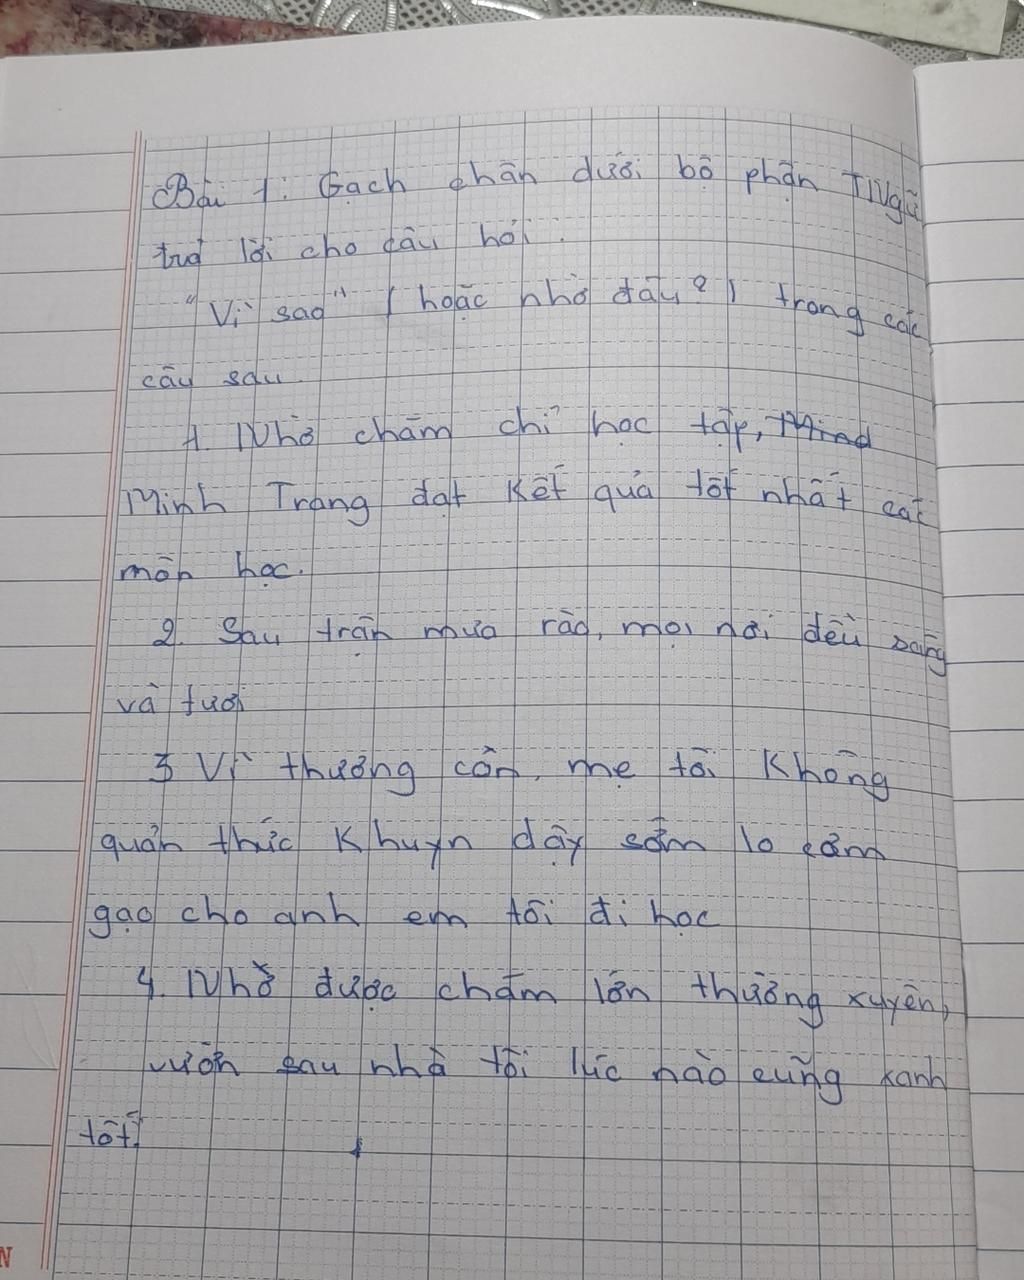 Bài 1: Gạch chân dưới bộ phận TNgữ
trả lời cho câu hỏi.
"Vì sao" ( hoặc nhờ đâu? ) trong các
câu sau
1. Nhờ chăm chỉ học tập,
Minh Trang đạt kết quả tốt nhất các
môn học.
2. Sau trận mưa rào, mọi nơi đều sáng
và tươi
3 Vì thương con, mẹ tôi không
quản thức khuyn dậy sớm lo cơm
gạo cho anh em tôi đi học
4. Nhờ được chăm lớn thường xuyên,
vườn sau nhà tôi lúc nào cũng xanh
tốt.
N